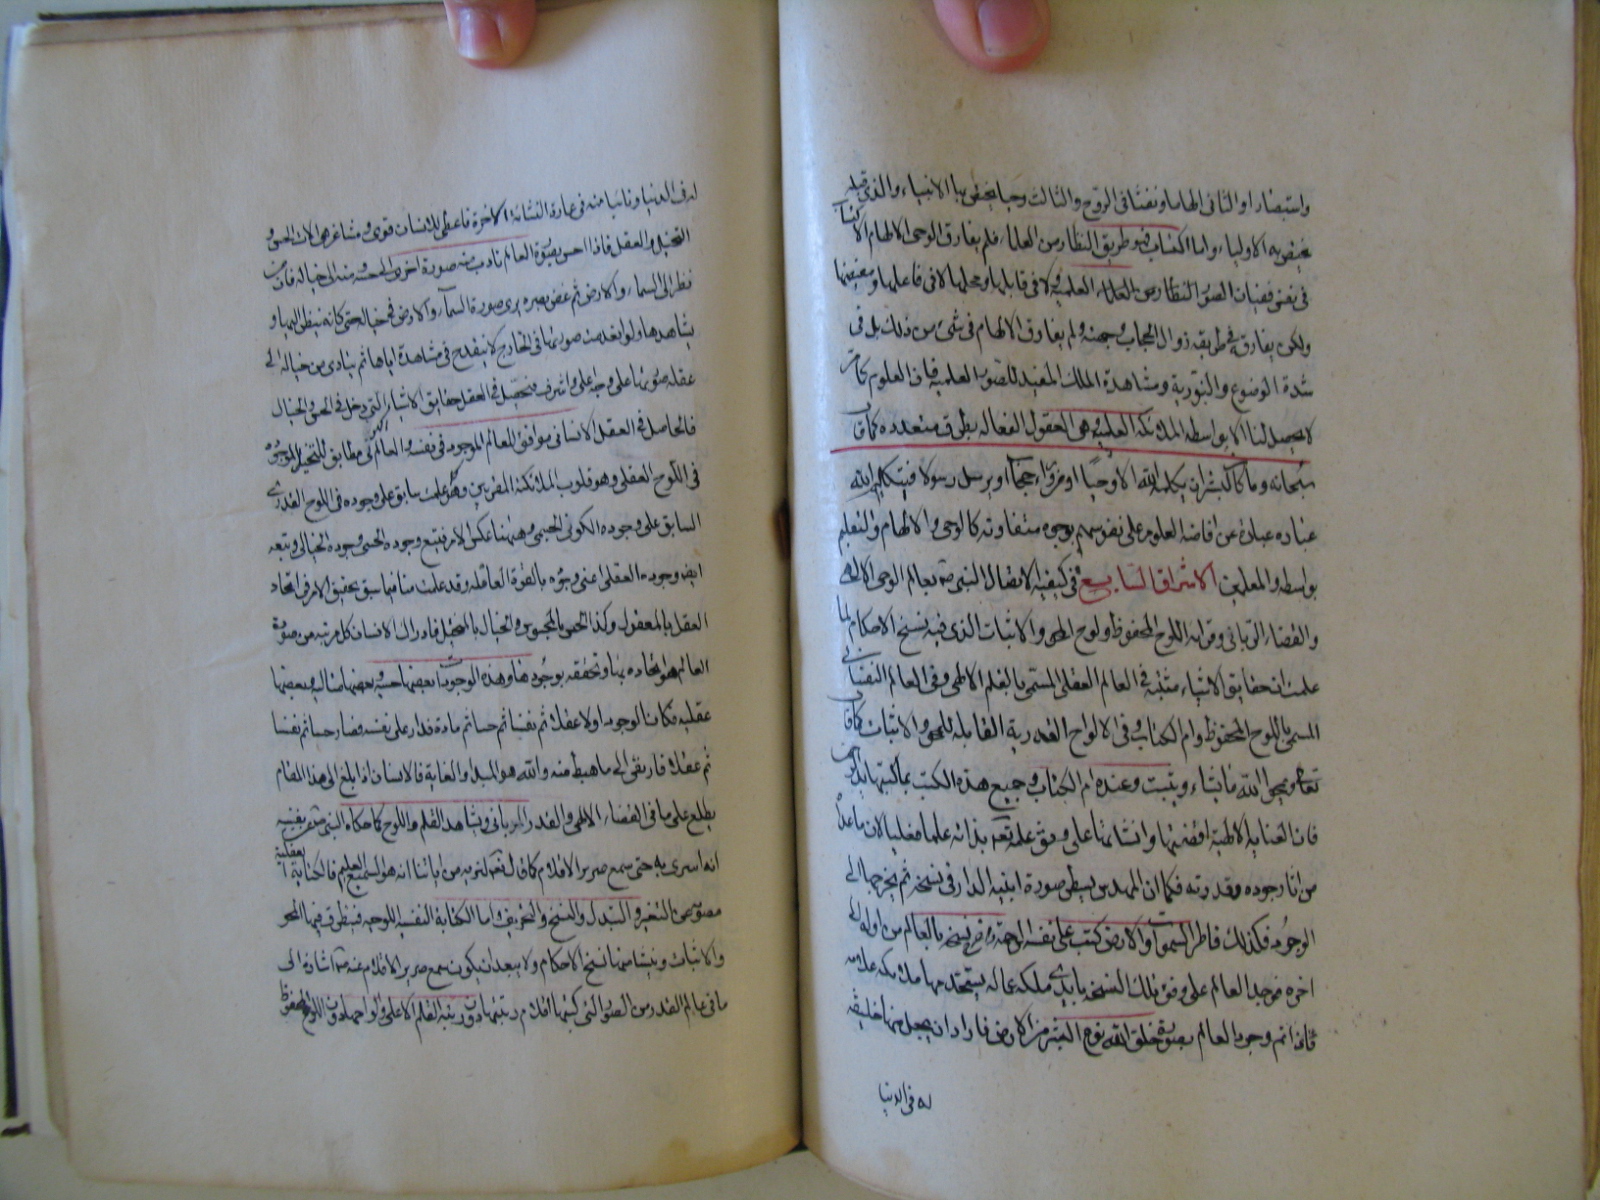 واستبصارا والثانى الهاما ونفثا فى الروع والثالث وحيا يختص بها الانبياء والذى قبله
يختص به الاولياء واما اكتساب فهو طريق النظار من العلماء فلم يفارق الوحى الالهام الاكتساب
فى نفس فيضان الصور العلمية ولا فى قابلها ومحلها ولا فى فاعلها ومفيضها
ولكن يفارقه فى طريقة زوال الحجاب وجهته ولم يفارق الالهام فى شئ من ذلك بل فى
شدة الوضوح والنورية ومشاهدة الملك المفيد للصور العلمية فان العلوم كما مر
لا يحصل لنا الا بواسطة الملائكة العلمية وهى العقول الفعالة بطرق متعددة كما قال
سبحانه وما كان لبشر ان يكلمه الله الا وحيا او من وراء حجاب او يرسل رسولا فتكليم الله
عباده عبارة عن افاضة العلوم على نفوسهم بوجوه متفاوته كالوحى والالهام والتعليم
بواسطه والمعلمين الاشراق السابع فى كيفية الاتصال النبى صه بعالم الوحى الالهى
والقضاء الربانى وقراءة اللوح المحفوظ ولوح المحو والاثبات الذى فيه نسخ الاحكام لما
علمت ان حقايق الاشياء مثبتة فى العالم العقلى المسمى بالقلم الالهى وفى العالم النفسانى
المسمى باللوح المحفوظ وام الكتاب وفى الالواح القدرية القابلة للمحو والاثبات كما قال
تعالى يمحو الله ما يشاء ويثبت وعنده ام الكتاب وجميع هذه الكتب مما كتبتها يد الرحمن
فان العناية الالهية اقتضتها وانشأتها على وفق علمه تعه بذاته علما فعليا لان ما عداه
من اثار وجوده وقدرته فكما ان المهندس يسطر صورة ابنية الدار فى نسخة ثم يخرجها الى
الوجود فكذلك فاطر السموات والارض كتب على نفسه الرحمة نسخة العالم من اوله الى
اخره فوجد العالم على وفق تلك النسخة بايدى ملئكة عمالة يستمد منها ملائكة علامة
فاذا تم وجود العالم بصورته خلق الله نوع البشر من الارض فاراد ان يجعل منها خليفة
له فى الدنيا
له فى الدنيا وثانيا منه فى عمارة النشأة الاخرة فاعطى للانسان قوى ومشاعر هى الات الحس و
التخيل والعقل فاذا احس بصورة العالم تادت منه صورة اخرى الى حسه ومنه الى خياله فان من
نظر الى السماء والارض ثم غض بصره يرى صورة السماء والارض فى خياله حتى كانه ينظر اليها و
يشاهدها ولو انعدمت صورتها فى الخارج لا ينقدح فى مشاهدة اياها ثم يتادى من خياله الى
عقله صورتها على وجه اعلى واشرف فيحصل فى العقل حقايق الاشياء التى دخل فى الحس والخيال
فالحاصل فى العقل الانسانى موافق للعالم الموجود فى نفسه والعالم مطابق للنسخة الموجودة
فى اللوح العقلى وهو قلوب الملائكة المقربين وهو سابق على وجوده فى اللوح القدرى
السابق على وجوده الكونى الجسمى وههنا عكس الامر فيتبع وجوده الحسى وجوده الخيالى ويتبعه
ايض وجوده العقلى اعنى وجوده بالقوة العاقلة وقد علمت منا فيما سبق تحقيق الامر فى اتحاد
العقل بالمعقول وكذا الحس بالمحسوس والخيال بالمتخيل فادراك الانسان كل مرتبة من صورة
العالم هو اتحاده بها وتحققه بوجودها وهذه الوجودات بعضها حسية وبعضها مثالية وبعضها
عقلية فكان الوجود اولا عقلا ثم نفسا ثم حسا ثم مادة فدار على نفسه فصار حسا ثم نفسا
ثم عقلا فارتقى الى ما هبط منه والله هو المبدا والغاية فالانسان اذا بلغ الى هذا المقام
يطلع على ما فى القضاء الالهى والقدر الربانى ويشاهد القلم واللوح كما حكاه النبى عن نفسه
انه اسرى به حتى سمع صرير الاقلام كما قال تعه لنريه من اياتنا انه هو السميع العليم فالكتابة العقلية
مصونة عن التغير والتبدل والنسخ والتحريف واما الكتابة النفسية اللوحية فيتطرق فيها المحو
والاثبات وينشا منها نسخ الاحكام ولا يبعد ان يكون سمع صرير الاقلام منه صه اشارة الى
ما فى عالم القدر من الصور التى كتبتها اقلام رتبتها دون رتبة القلم الاعلى والواحها دون اللوح المحفوظ